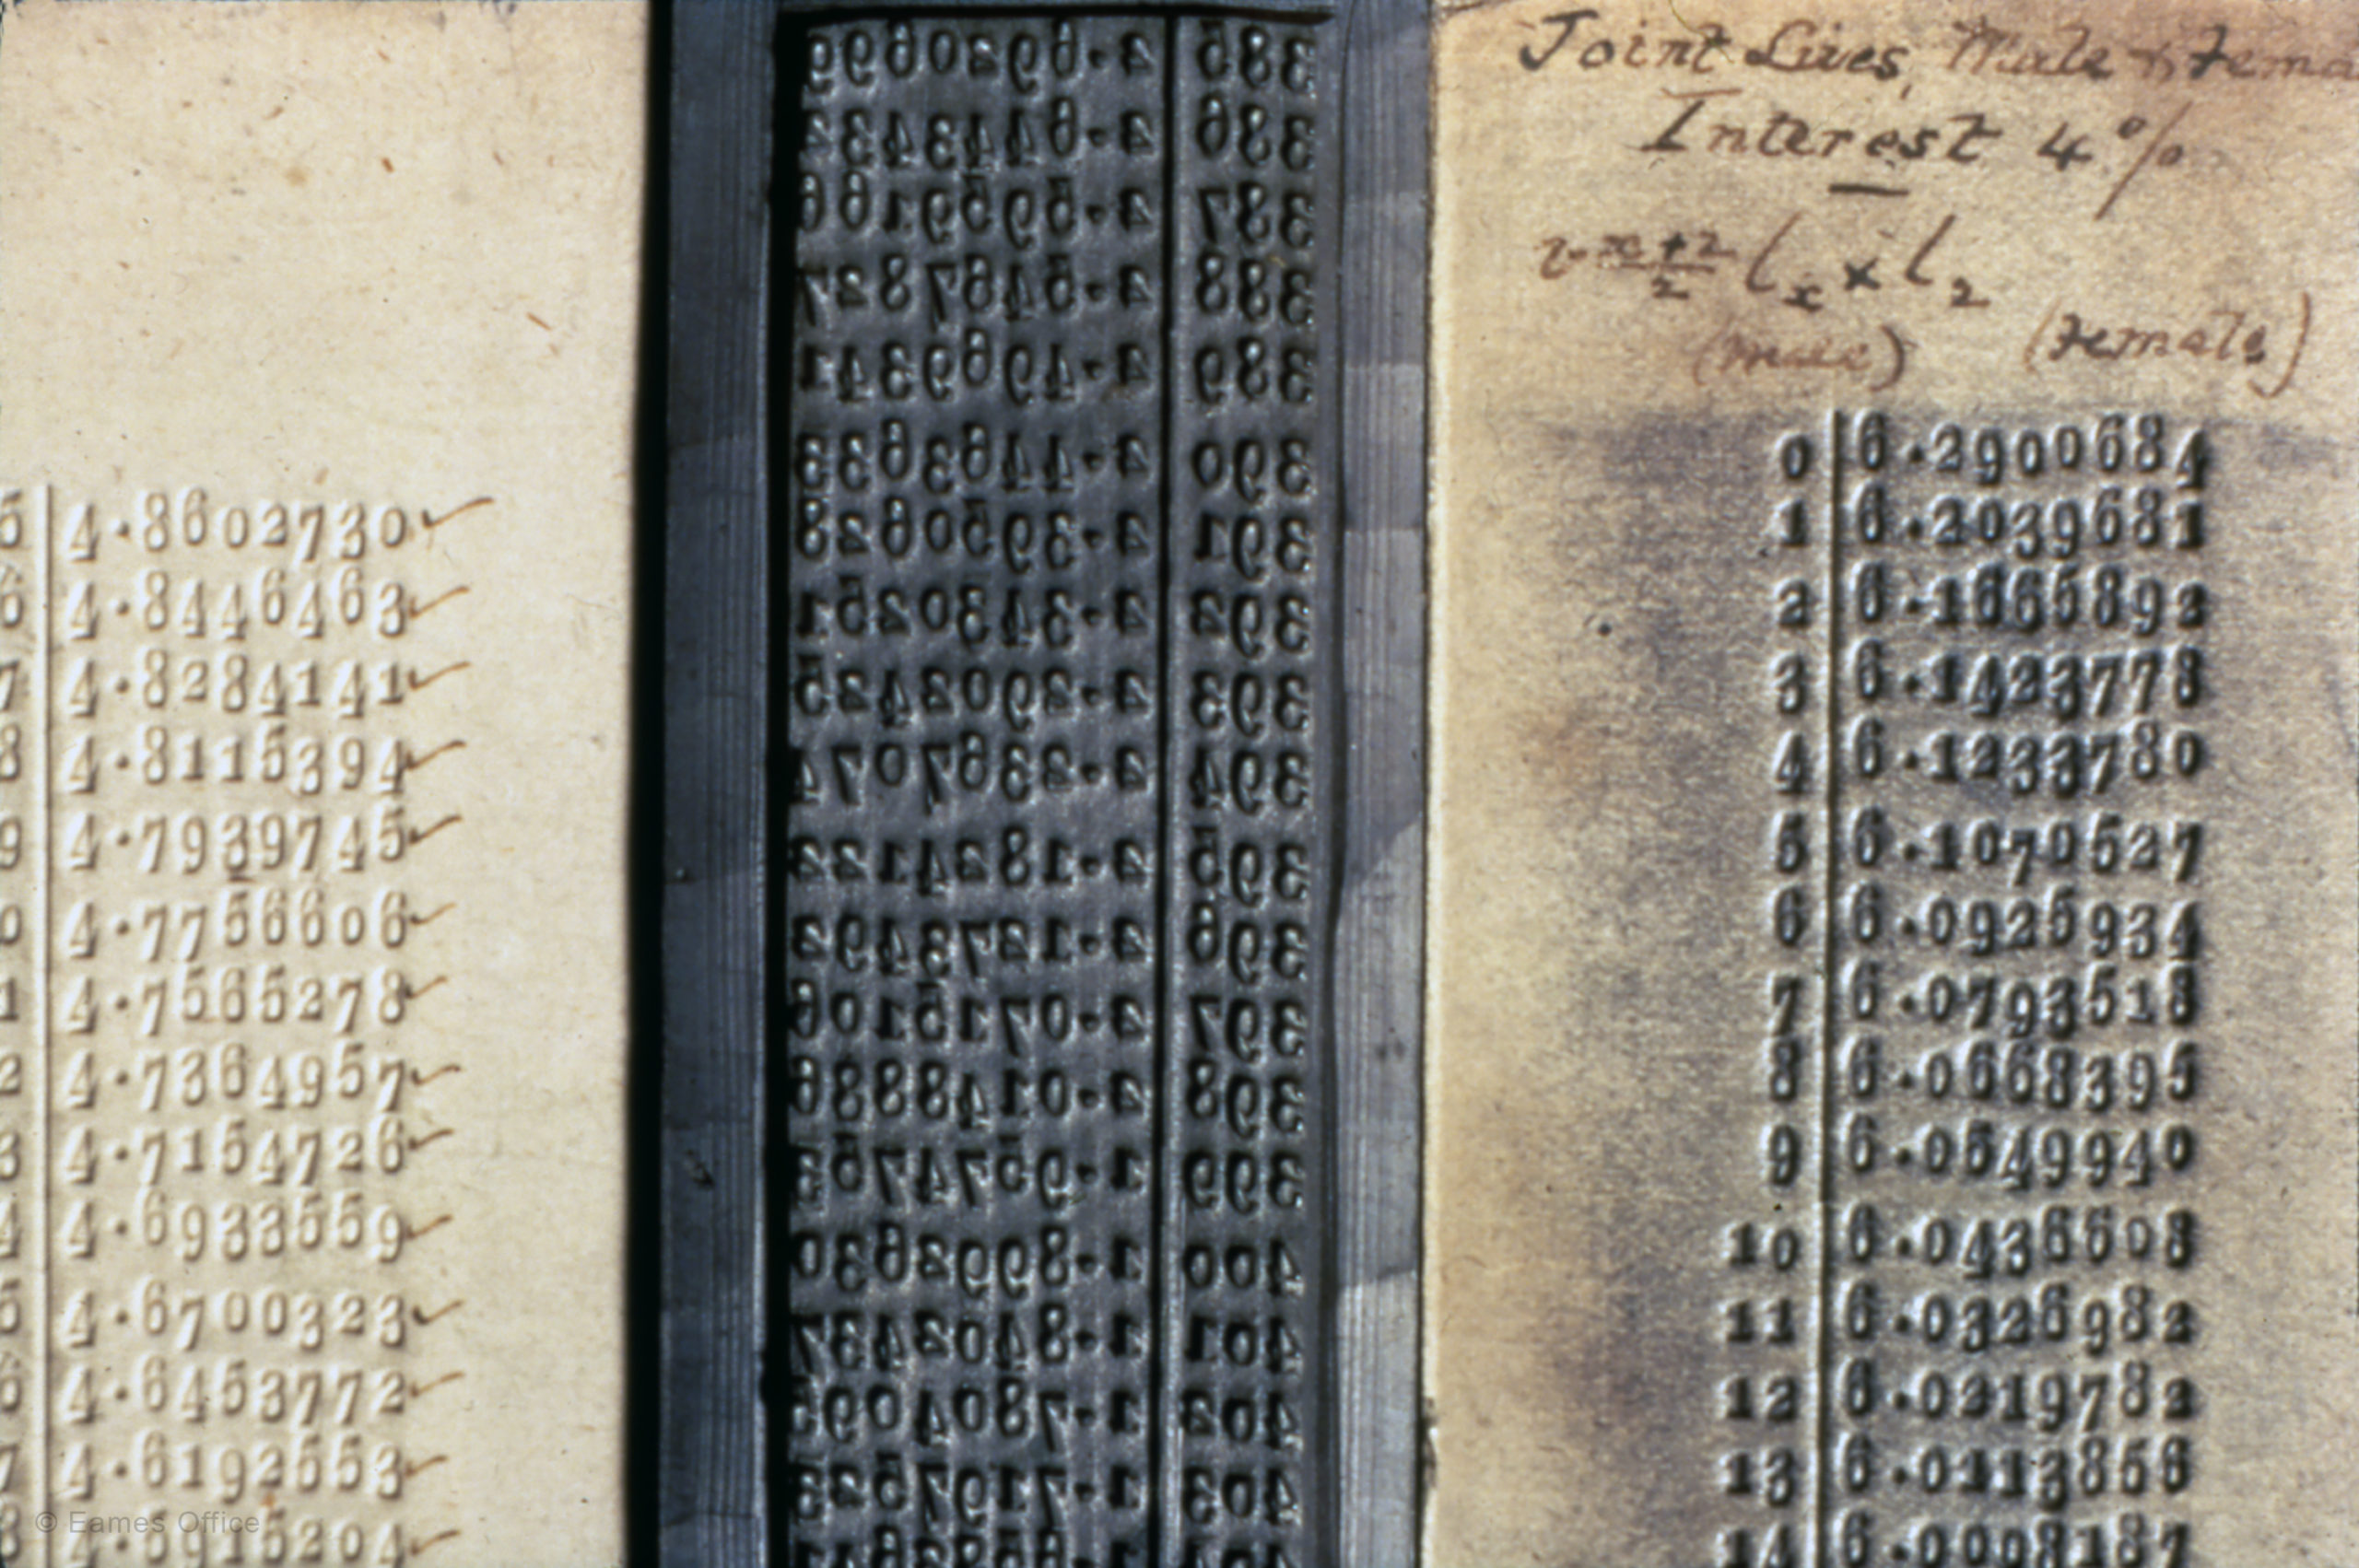 5 4.8602730 ✓
6 4.8446463 ✓
7 4.8284141 ✓
8 4.8115394 ✓
9 4.7939745 ✓
0 4.7756606 ✓
1 4.7565278 ✓
2 4.7364957 ✓
3 4.7154726 ✓
4 4.6933559 ✓
5 4.6700323 ✓
6 4.6453772 ✓
7 4.6192553 ✓
8 4.5915204 ✓
385 2.6920699
386 2.6443432
387 2.5959166
388 2.5467827
389 2.4969341
390 2.4463633
391 2.3950628
392 2.3430251
393 2.2902425
394 2.2367074
395 2.1824122
396 2.1273492
397 2.0715106
398 2.0148886
399 1.9574755
400 1.8992630
401 1.8402437
402 1.7804095
403 1.7197523
Joint Lives, Male & Fema
Interest 4%
v x+2/2 lx × l2
(male) (female)
0 6.2900684
1 6.2039681
2 6.1665892
3 6.1423778
4 6.1233780
5 6.1070527
6 6.0925934
7 6.0793518
8 6.0668395
9 6.0549940
10 6.0436608
11 6.0326982
12 6.0219782
13 6.0113856
14 6.0008187
© Eames Office